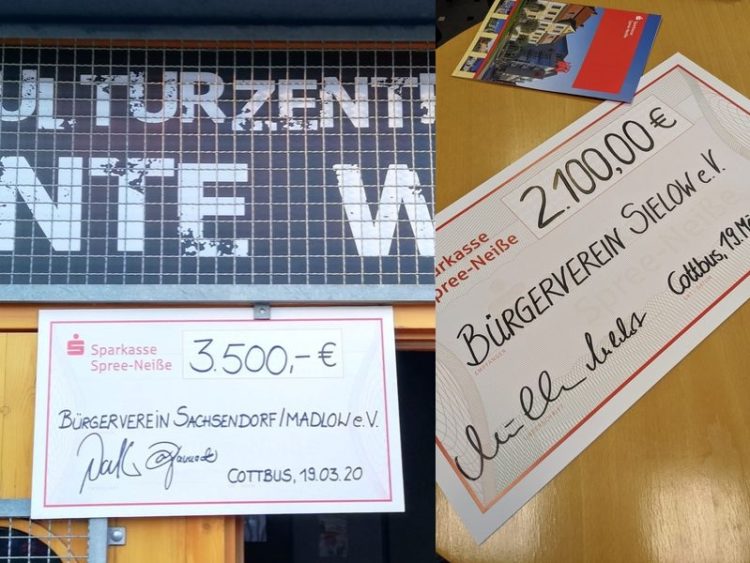 ULTURZENTE
NTE W
Sparkasse
Spree-Neiße
3.500,-€
BÜRGERVEREIN SACHSENDORF/MADLOW e.V.
COTTBUS, 19.03.20
arkasse
Spree-Neiße
2.100,00 €
BÜRGERVEREIN SIELOW e.V.
Cottbus, 19.Mä